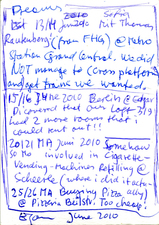 Dreams
2010
13/14 June 2010 Mit Thomas
Rautenberg (from FHG) @ Metro
Station Grand Central. We did
Not manage to (cross platform)
and get trains we wanted.
15/16 June 2010 Berlin @
Discovered that our Loft 3/9
had 2 more rooms that I
could rent out!!
20/21 MA Juni 2010 Somehow
so No involved in Cigarette-
Vending machines Refilling @
Scheessle (where i did it
25/26 MA Buying Pizza
@ Pizzeria Too cheap!
June 2010